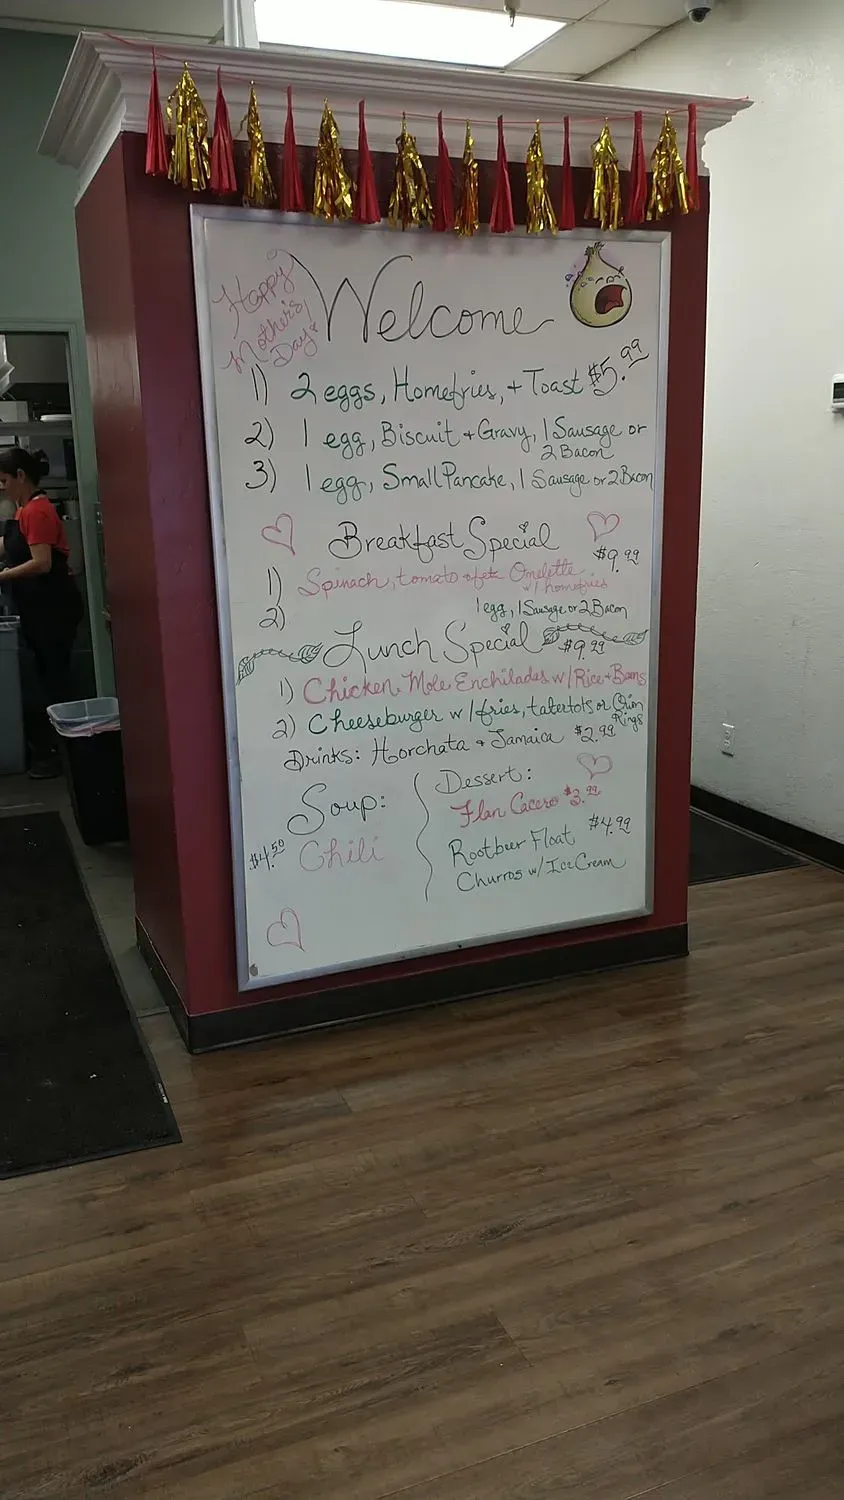 Happy
Mother's
Day!
Welcome
1) 2 eggs, Homefries, + Toast $5.99
2) 1 egg, Biscuit + Gravy, 1 Sausage or
2 Bacon
3) 1 egg, Small Pancake, 1 Sausage or 2 Bacon
Breakfast Special
$9.99
1) Spinach, tomato Omelette
w/ homefries
2) 1 egg, 1 Sausage or 2 Bacon
Lunch Special $9.99
1) Chicken Mole Enchiladas w/ Rice + Beans
2) Cheeseburger w/ fries, tatertots or Onion
Rings
Drinks: Horchata + Jamaica $2.99
Soup:
$4.50 Chili
Dessert:
Flan Casero $3.99
Rootbeer Float $4.99
Churros w/ Ice Cream